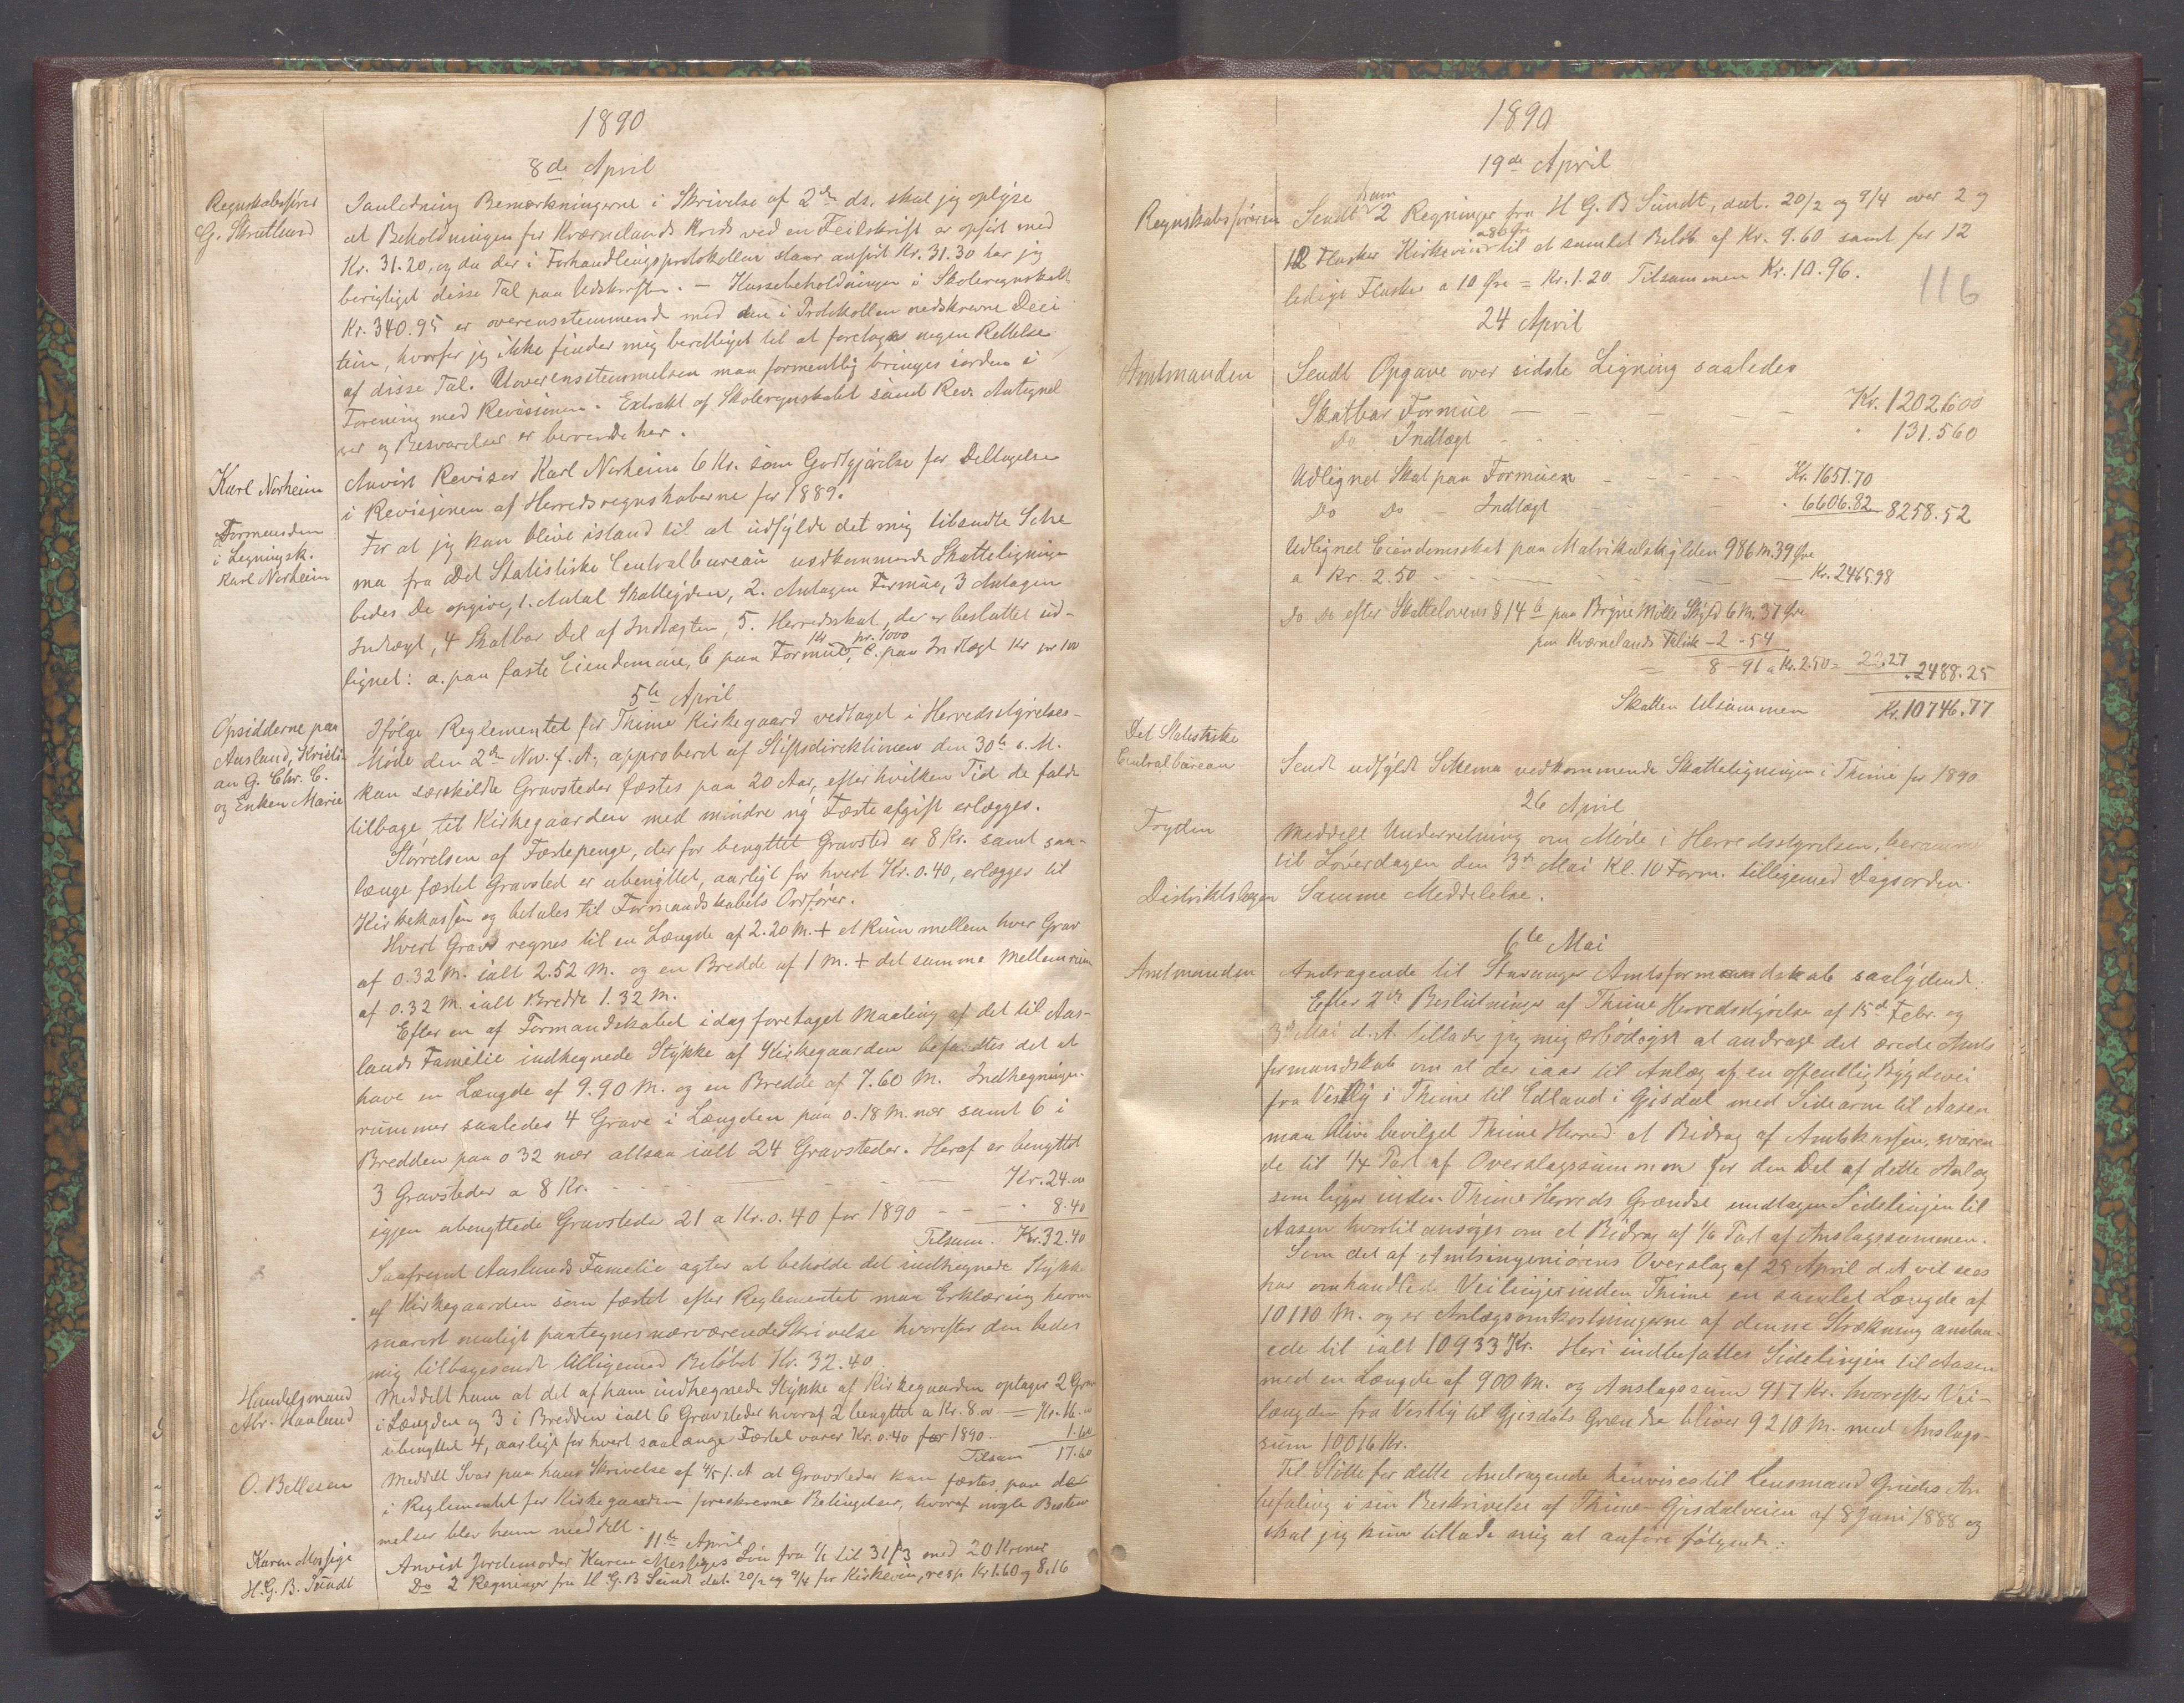 1890
8de April
Regnskabsfører
G. Skrutlund
Ianledning Bemærkningerne i Skrivelse af 2de ds. skal jeg oplyse
at Beholdningen for Kværnelands Kreds ved en Feilskrift er opført med
Kr. 31.20, og da der i Forhandlingsprotokollen staar anført Kr. 31.30 har jeg
berigtiget disse Tal paa Udskriften. — Kassebeholdningen i Skoleregnskabet
Kr. 340.95 er overensstemmende med den i Protokollen nedskrevne Deci
tion, hvorfor jeg ikke finder mig berettiget til at foretage nogen Rettelse
af disse Tal. Uoverensstemmelsen maa formentlig bringes iorden i
Forening med Revisionen. Extrakt af Skoleregnskabet samt Rev. Antegnel
ser og Besvarelser er beroende her.
Karl Norheim
Anvist Revisor Karl Norheim 6 Kr. som Godtgjørelse for Deltagelse
i Revisjonen af Herredsregnskaberne for 1889.
Formanden
i Ligningsk.
Karl Norheim
For at jeg kan blive istand til at udfylde det mig tilsendte Sche
ma fra Det Statistiske Centralbureau vedkommende Skatteligningen
bedes De opgive, 1. Antal Skatteydere, 2. Antagen Formue, 3 Antagen
Indtægt, 4 Skatbar Del af Indtægten, 5. Herredsskat, der er besluttet ud-
lignet: a. paa faste Eiendomme, b paa Formue, Kr. pr. 1000 c. paa Indtægt Kr pr 100
5te April
Opsidderne paa
Aasland, Kristi-
an G. Chr. C.
og Enken Marie
Ifølge Reglementet for Thime Kirkegaard vedtaget i Herredsstyrelses-
Møde den 2de Nov. f. A., approberet af Stiftsdirektionen den 30te s. M.
kan særskildte Gravsteder fæstes paa 20 Aar, efter hvilken Tid de falde
tilbage til Kirkegaarden med mindre ny Fæsteafgift erlægges.
Størrelsen af Fæstepenge, der for benyttet Gravsted er 8 Kr. samt saa-
længe fæstet Gravsted er ubenyttet, aarligt for hvert Kr. 0.40, erlægges til
Kirkekassen og betales til Formandskabets Ordfører.
Hvert Grav regnes til en Længde af 2.20 M. + et Rum mellem hver Grav
af 0.32 M. ialt 2.52 M. og en Bredde af 1 M. + det samme Mellemrum
af 0.32 M. ialt Bredde 1.32 M.
Efter en af Formandskabet idag foretaget Maaling af det til Aas-
lands Familie indhegnede Stykke af Kirkegaarden befandtes det at
have en Længde af 9.90 M. og en Bredde af 7.60 M. Indhegningen
rummer saaledes 4 Grave i Længden paa 0.18 M. nær samt 6 i
Bredden paa 0 32 nær altsaa ialt 24 Gravsteder. Heraf er benyttet
3 Gravsteder a 8 Kr. - - - — - — Kr. 24.00
igjen ubenyttede Gravsteder 21 a Kr. 0.40 for 1890 - - - 8.40
Tilsam. Kr. 32.40
Saafremt Aaslands Familie agter at beholde det indhegnede Stykke
af Kirkegaarden som fæstet efter Reglementet maa Erklæring herom
snarest muligt paategnes nærværende Skrivelse hvorefter den bedes
mig tilbagesendt tilligemed Beløbet Kr. 32.40.
Handelsmand
Abr. Haaland
Meddelt ham at det af ham indhegnede Stykke af Kirkegaarden optager 2 Grave
i Længden og 3 i Bredden ialt 6 Gravsteder hvoraf 2 benyttet a Kr. 8.00 — = Kr. 16.00
ubenyttet 4, aarligt for hvert saalænge Fæstet varer Kr. 0.40 for 1890 - 1.60
Tilsam 17.60
O. Bellesen
Meddelt Svar paa hans Skrivelse af 4/5 f. A at Gravsteder kan fæstes paa de
i Reglementet for Kirkegaarden foreskrevne Betingelser, hvoraf nogle Bestem
melser blev ham meddelt.
11te April
Karen Mossige
Anvist Jordemoder Karen Mossiges Løn fra 1/1 til 31/3 med 20 Kroner
H. G. B. Sundt
Do 2 Regninger fra H G. B Sundt dat. 20/2 og 9/4 for Kirkevin, resp. Kr 1.60 og 8.16
1890
116
19de April
Regnskabsføreren
Sendt ham 2 Regninger fra H G. B Sundt, dat. 20/2 og 9/4 over 2 og
12 Flasker Kirkevin a 80 Øre til et samlet Beløb af Kr. 9.60 samt for 12
ledige Flasker a 10 Øre = Kr. 1.20 Tilsammen Kr. 10.96.
24 April
Amtmanden
Sendt Opgave over sidste Ligning saaledes
Skatbar Formue — - - - - Kr. 1202600
Do Indtægt - - - - " 131.560
Udlignet Skat paa Formuen - - - Kr. 1651.70
Do Do - Indtægt - - - " 6606.82 8258.52
Udlignet Eiendomsskat paa Matrikulskylden 986 M. 39 Øre
a Kr. 2.50 - - - - — Kr. 2465.98
Do Do efter Skattelovens § 14 b paa Bryne Mølle Skyld 6 M. 37 Øre
paa Kværnelands Fabrik - 2 - 54
8 - 91 a Kr. 2.50 = 22.27 . 2488.25
Skatten tilsammen Kr. 10746.77
Det Statistiske
Centralbureau
Sendt udfyldt Schema vedkommende Skatteligningen i Thime for 1890
26 April
Fogden
Meddelt Underretning om Møde i Herredsstyrelsen, berammet
til Løverdagen den 3de Mai Kl. 10 Form. tilligemed Dagsorden.
Distriktslægen
Samme Meddelelse.
6te Mai
Amtmanden
Andragende til Stavanger Amtsformandskab saalydende:
Efter 2de Beslutninger af Thime Herredsstyrelse af 15de Febr. og
3de Mai d. A. tillader jeg mig ærbødigst at andrage det ærede Amts
formandskab om at der iaar til Anlæg af en offentlig Bygdevei
fra Vestly i Thime til Edland i Gjisdal med Sidearm til Aasen
maa blive bevilget Thime Herred et Bidrag af Amtskassen, svaren
de til 1/4 Part af Overslagssummen for den Del af dette Anlæg
som ligger inden Thime Herreds Grændse undtagen Sidelinjen til
Aasen hvortil ansøges om et Bidrag af 1/6 Part af Anslagssummen.
Som det af Amtsingeniørens Overslag af 29 April d. A vil sees
har omhandlede Veilinjer inden Thime en samlet Længde af
10110 M. og er Anlægsomkostningerne af denne Strækning anslaa-
ede til ialt 10933 Kr. Heri indbefattes Sidelinjen til Aasen
med en Længde af 900 M. og Anslagssum 917 Kr. hvorefter Vei-
længden fra Vestly til Gjisdals Grændse bliver 9210 M. med Anslags-
sum 10016 Kr.
Til Støtte for dette Andragende henvises til Lensmand Grudes An
befaling i sin Beskrivelse af Thime-Gjisdalveien af 8 Juni 1888 og
skal jeg kun tillade mig at anføre følgende: